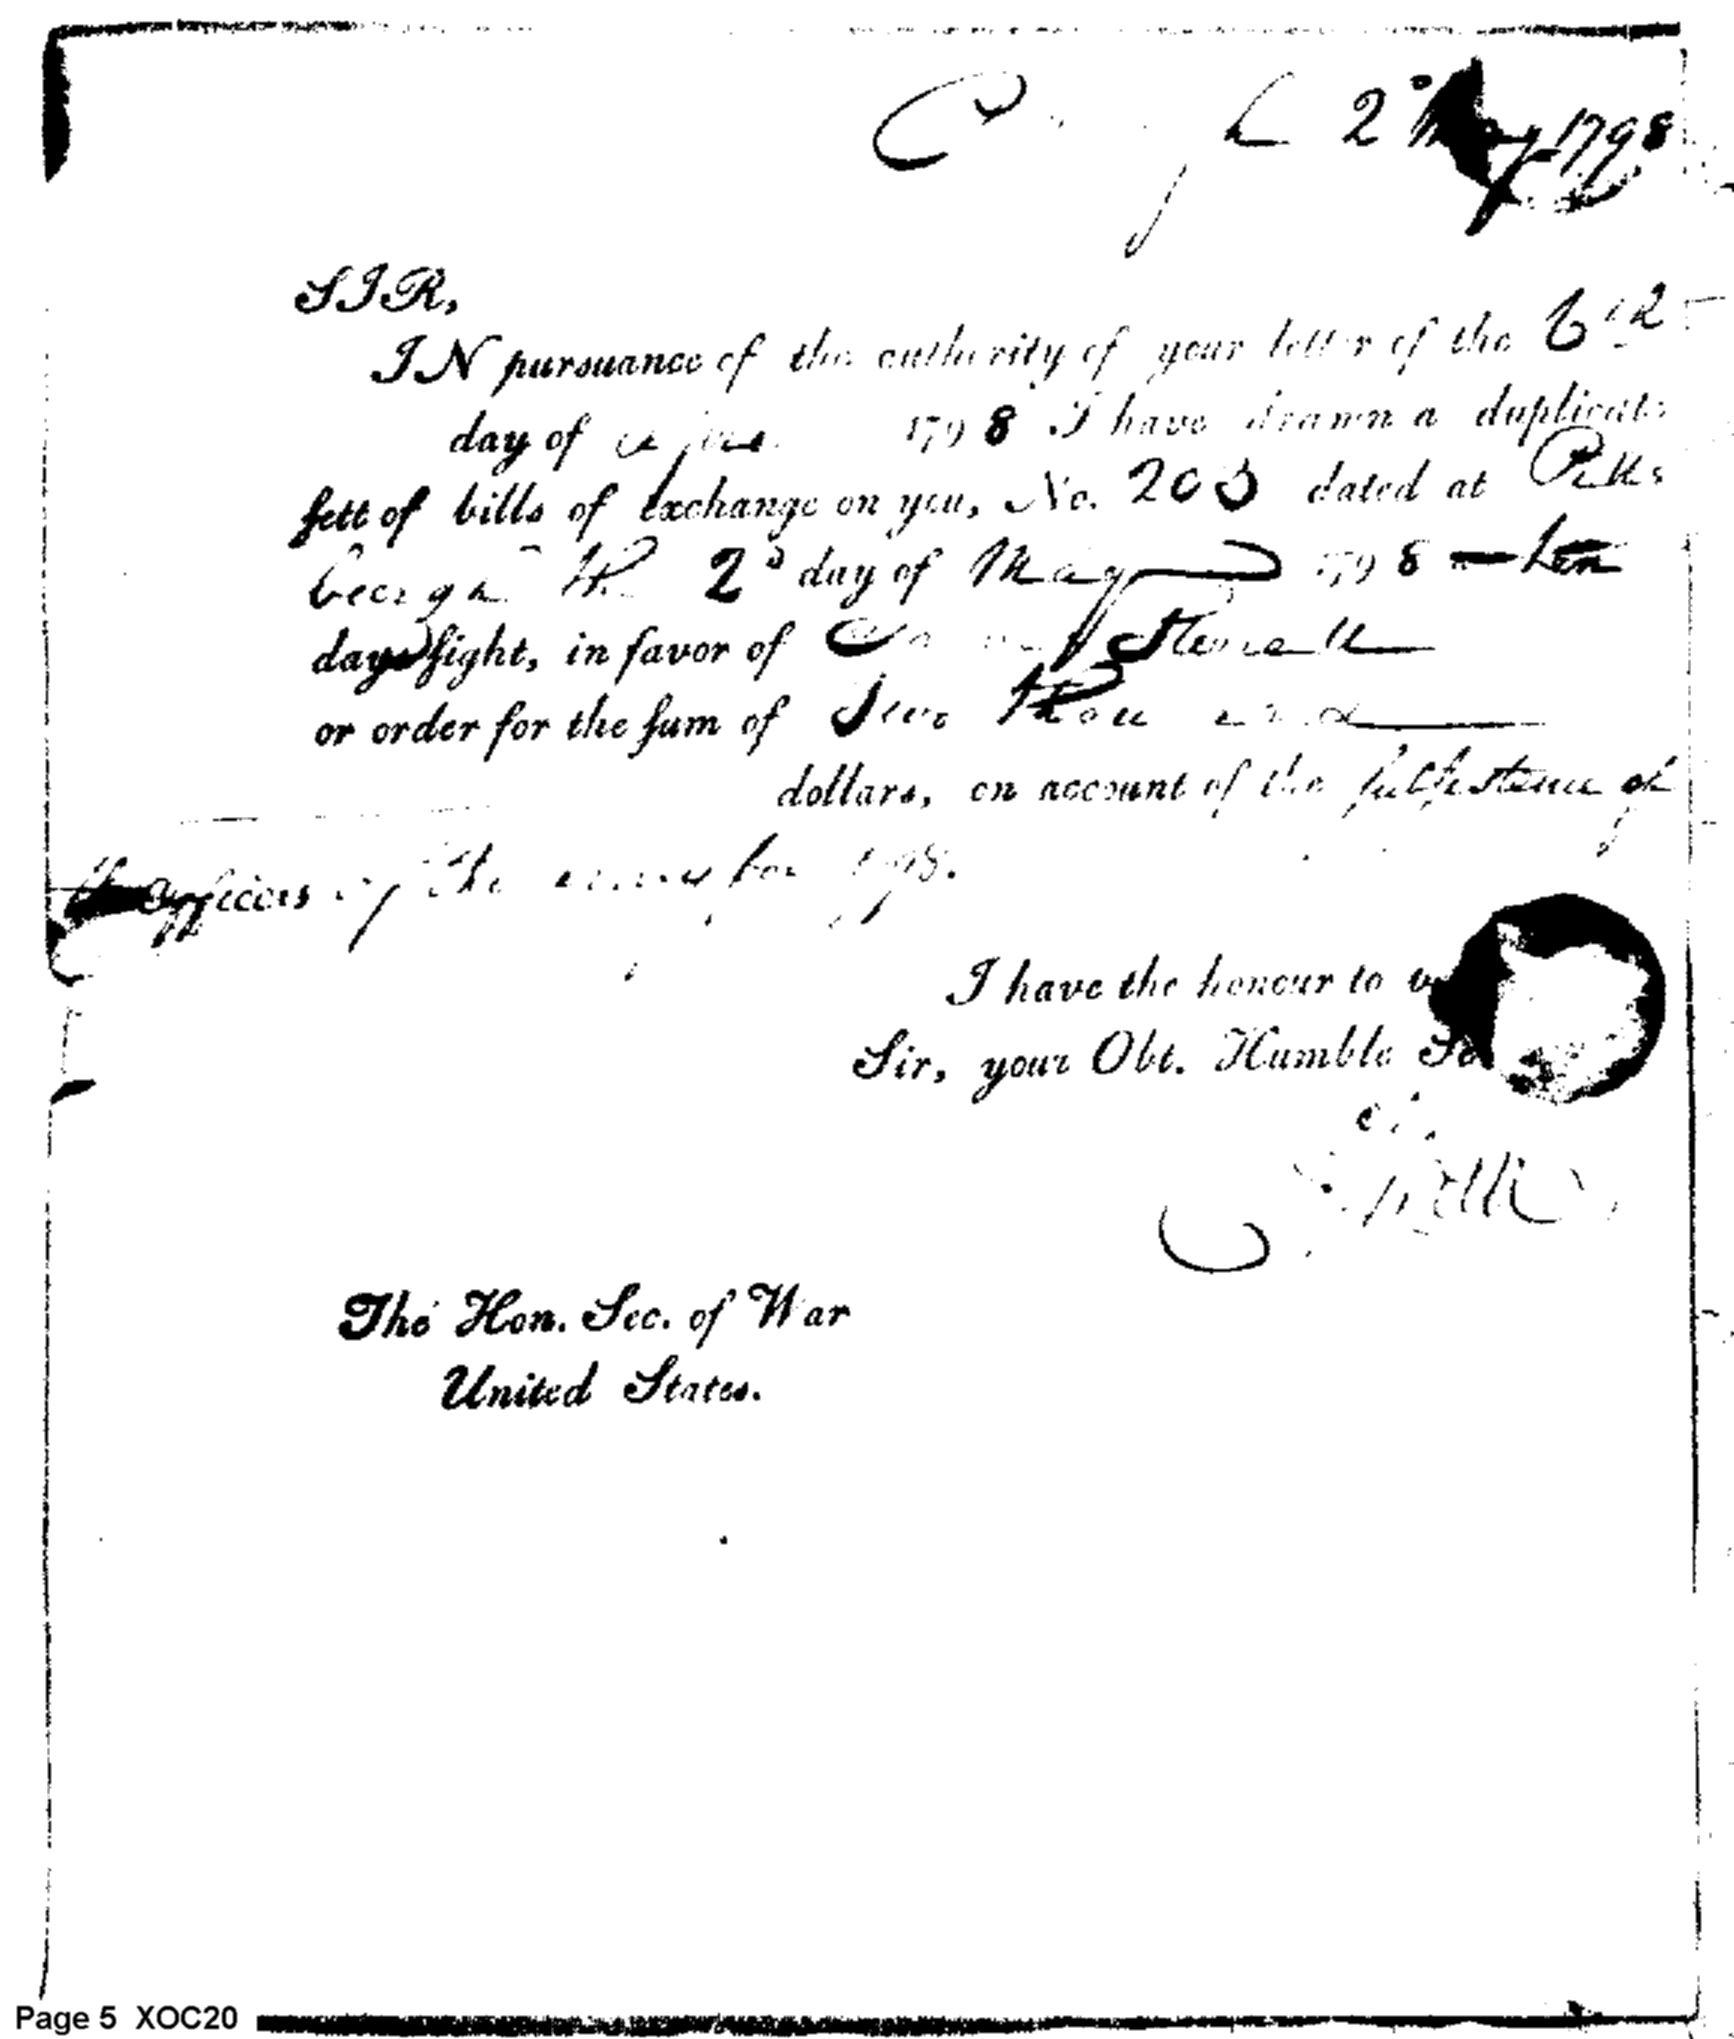 2d May 1798
SIR,
IN pursuance of the authority of your letter of the 6th
day of 1798 I have drawn a duplicate
sett of bills of exchange on you, No. 203 dated at Pitts
burgh the 2d day of May 1798 ten
days sight, in favor of
or order for the sum of Two thousand
dollars, on account of the subsistence of
the officers of the army for 1798.
I have the honour to
Sir, your Obt. Humble
The Hon. Sec. of War
United States.
Page 5 XOC20